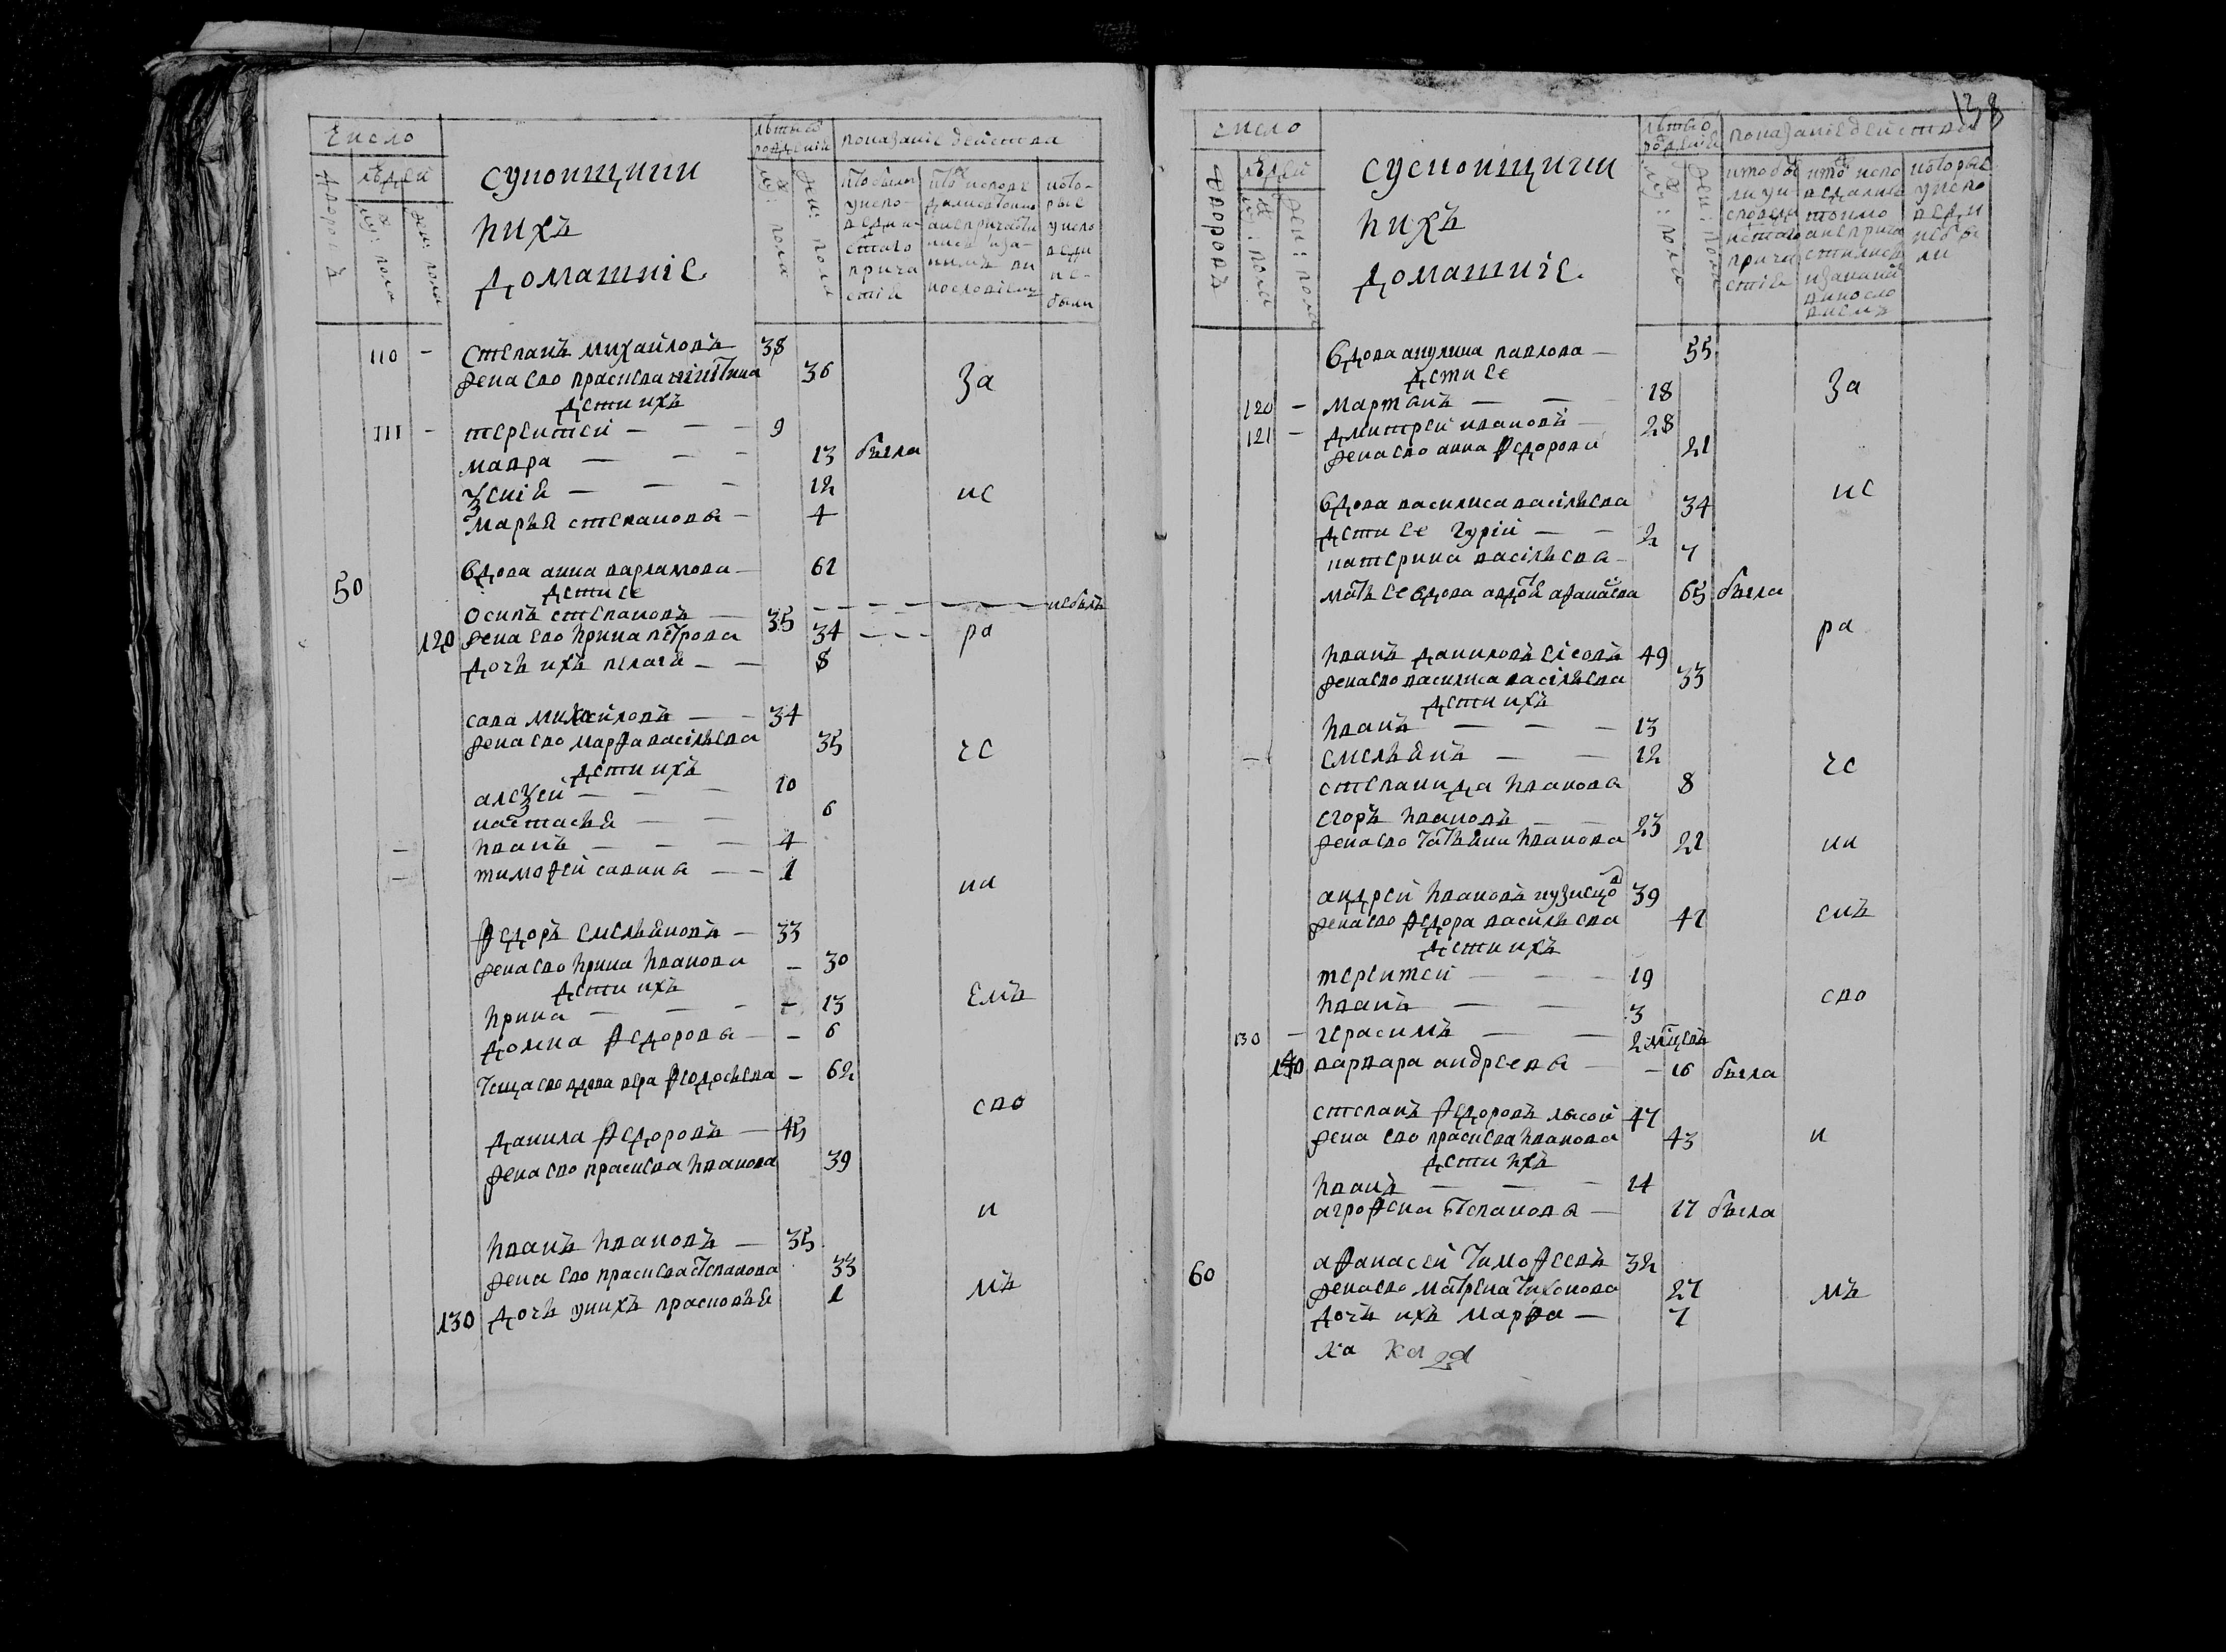 Число
людей
дворовъ
муж: пола
жен: пола
суконщики
ихъ
домашніе
лѣта от рожденія
муж: пола
жен: пола
показаніе действа
кто были у исповеди и св: таго причастія
кто исповедались токмо а не причастились и за каким винословіемъ
которые у исповеди не были
110 - степанъ михайловъ 38
жена ево прасковя 36 за
дети ихъ
111 - терентей - - - 9
мавра - - - 13 была
ксенія - - - 12 ис
марья степановы - 4
вдова анна варламова - 62
50 дети ее
осипъ степановъ - 35 - - - - не былъ
120 жена ево ирина петрова 34 - - - ра
дочь ихъ пелагея - - 8
сава михайловъ - - 34
жена ево марфа васільева 35 че
дети ихъ
алеѯей - - - 10
настасья - - 6
- иванъ - - - 4
- тимофей савины - - 1
ни
федоръ емельяновъ - 33
жена ево ирина иванова - 30
дети ихъ
ирина - - - - 13 емъ
домна федоровы - - 6
теща ево вдова вера феодосьева - 62
сво
данила федоровъ - 45
жена ево прасковя иванова 39
и
иванъ ивановъ - 35
жена ево прасковя степанова 33
130 дочь у нихъ прасковья 1 мъ
128
число
людей
дворовъ
муж: пола
жен: пола
суконщики
ихъ
домашніе
лѣта от рожденія
муж: пола
жен: пола
показаніе действа
кто были у исповеди и св: таго причастія
кто исповедались токмо а не причастились и за каким винословиемъ
которые у исповеди не были
вдова акулина павлова - 55
дети ее
120 - мартынъ - - - 18 за
121 - дмитрей ивановъ - 28
жена ево анна федорова 21
вдова василиса васільева 34 ис
дети ее гурій - - 2
катерина васільева - 7
мать ее вдова авдотя афанасева 65 была
ра
иванъ даниловъ 49
жена ево василиса васільева 33
дети ихъ
иванъ - - - 13
- емельянъ - - 12
степанида иванова 8 че
егоръ ивановъ - - 23
жена ево татьяна иванова 21 ни
андрей ивановъ кузнецов 39
жена ево федора васильева 41 емъ
дети ихъ
терентей - - 19
иванъ - - 3 сво
130 - герасимъ - - 2 мцевъ
140 варвара андреевы - - 16 была
степанъ федоровъ лысой 47
жена ево прасковя иванова 43 и
дети ихъ
иванъ - - - 14
агрофена степановы - 17 была
афанасей тимофеевъ 32
60 жена ево матрена тихонова 27 мъ
дочь ихъ марфа - 7